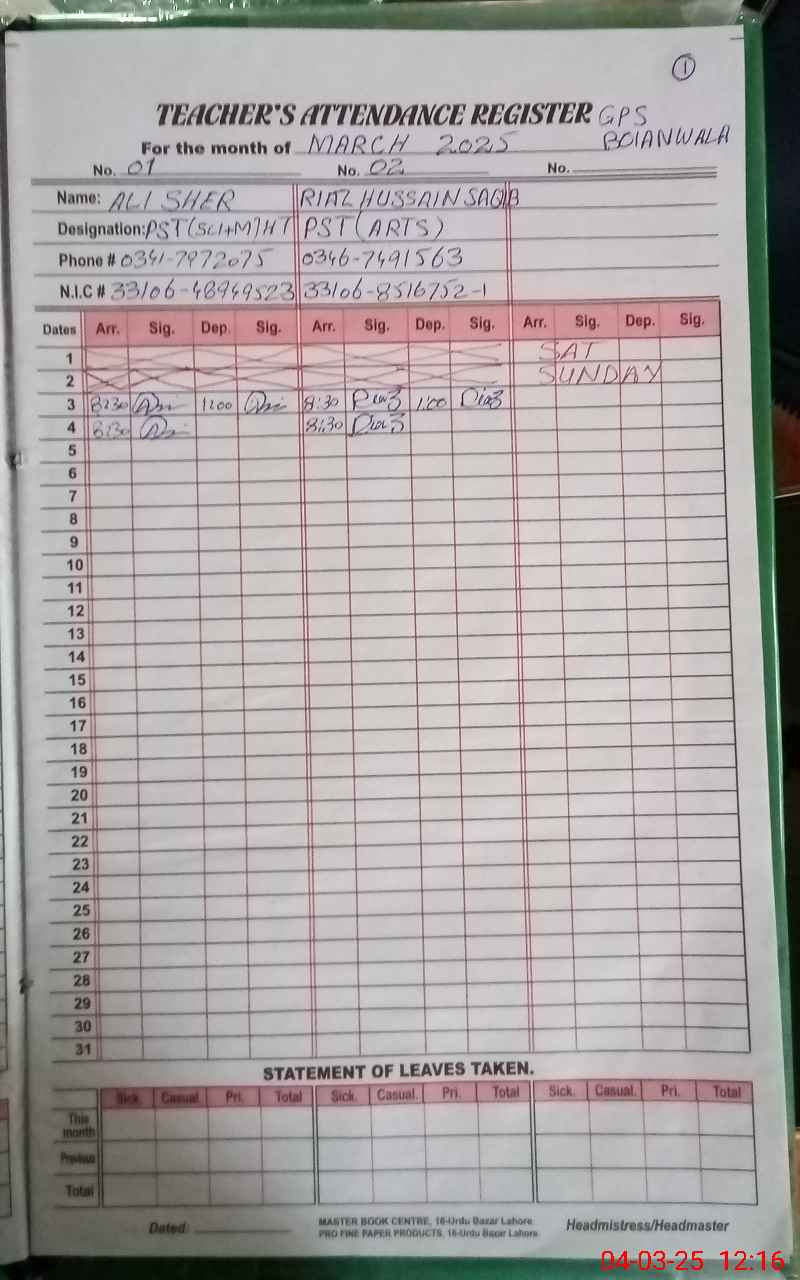 1
TEACHER'S ATTENDANCE REGISTER GPS
For the month of MARCH 2025 BOIANWALA
No. 01 No. 02 No.
Name: ALI SHER RIAZ HUSSAIN SAQIB
Designation: PST(SCI+M)HT PST(ARTS)
Phone # 0341-7972075 0346-7491563
N.I.C # 33106-48949523 33106-8516752-1
Dates Arr. Sig. Dep. Sig. Arr. Sig. Dep. Sig. Arr. Sig. Dep. Sig.
1 SAT
2 SUNDAY
3 8:30 1:00 8:30 1:00
4 8:30 8:30
5
6
7
8
9
10
11
12
13
14
15
16
17
18
19
20
21
22
23
24
25
26
27
28
29
30
31
STATEMENT OF LEAVES TAKEN.
Sick. Casual. Pri. Total Sick. Casual. Pri. Total Sick. Casual. Pri. Total
This month
Previous
Total
Dated: MASTER BOOK CENTRE, 16-Urdu Bazar Lahore. Headmistress/Headmaster
PRO FINE PAPER PRODUCTS, 16-Urdu Bazar Lahore.
04-03-25 12:16